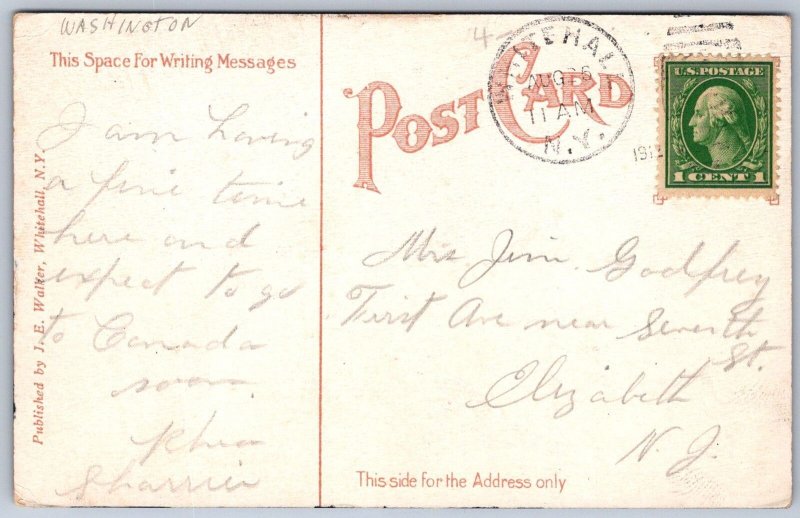 WASHINGTON
4-
This Space For Writing Messages
POST CARD
WHITEHALL
AUG 26
11 AM
N.Y.
1912
U.S. POSTAGE
1 CENT 1
I am having
a fine time
here and
expect to go
to Canada
soon
Published by J. E. Walker, Whitehall, N.Y.
Mrs Jim Godfrey
First Ave near Seventh
St.
Elizabeth
N. J.
This side for the Address only